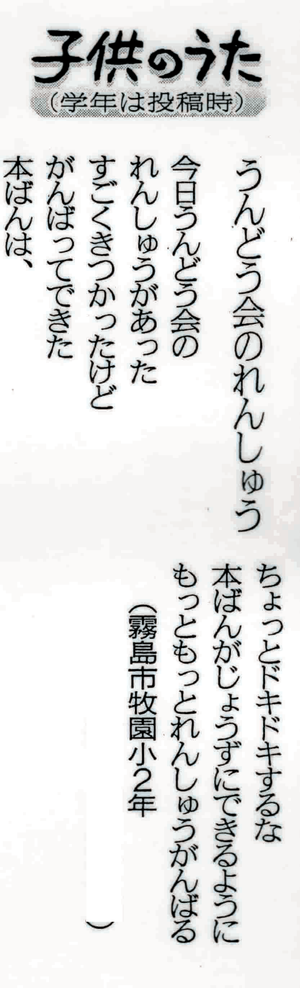 子供のうた
(学年は投稿時)
うんどう会のれんしゅう
今日うんどう会の
れんしゅうがあった
すごくきつかったけど
がんばってできた
本ばんは、
ちょっとドキドキするな
本ばんがじょうずにできるように
もっともっとれんしゅうがんばる
(霧島市牧園小2年
)